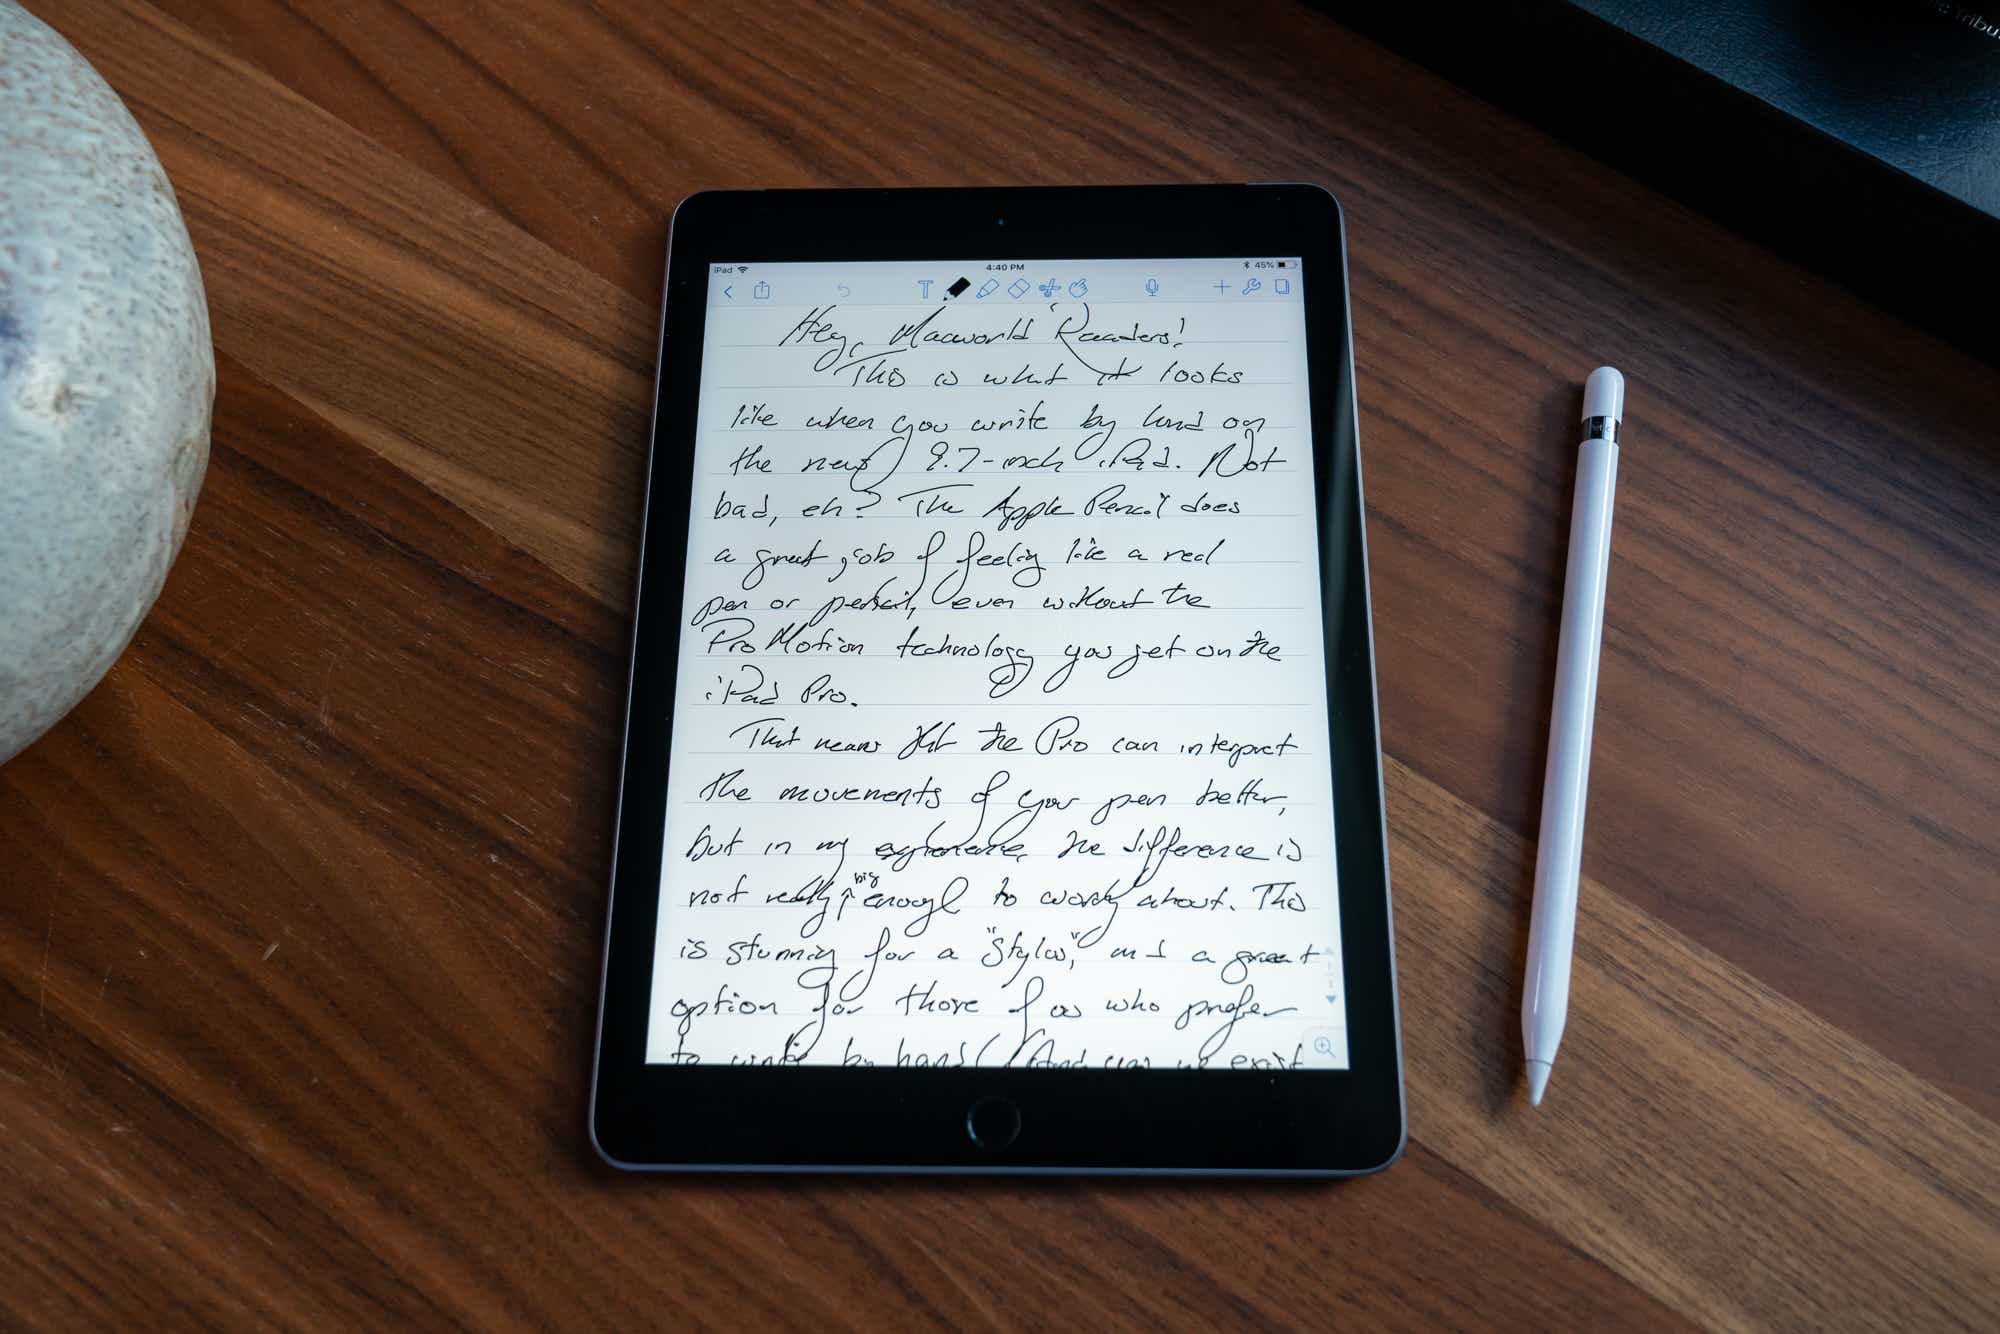 iPad 4:40 PM 45%
T
Hey, Macworld Readers!
This is what it looks
like when you write by hand on
the new 9.7-inch iPad. Not
bad, eh? The Apple Pencil does
a great job of feeling like a real
pen or pencil, even without the
ProMotion technology you get on the
iPad Pro.
That means that the Pro can interpret
the movements of your pen better,
but in my experience, the difference is
not really big enough to worry about. This
is stunning for a "stylus," and a great
option for those of us who prefer
to write by hand! (And yes, we exist
Tribu